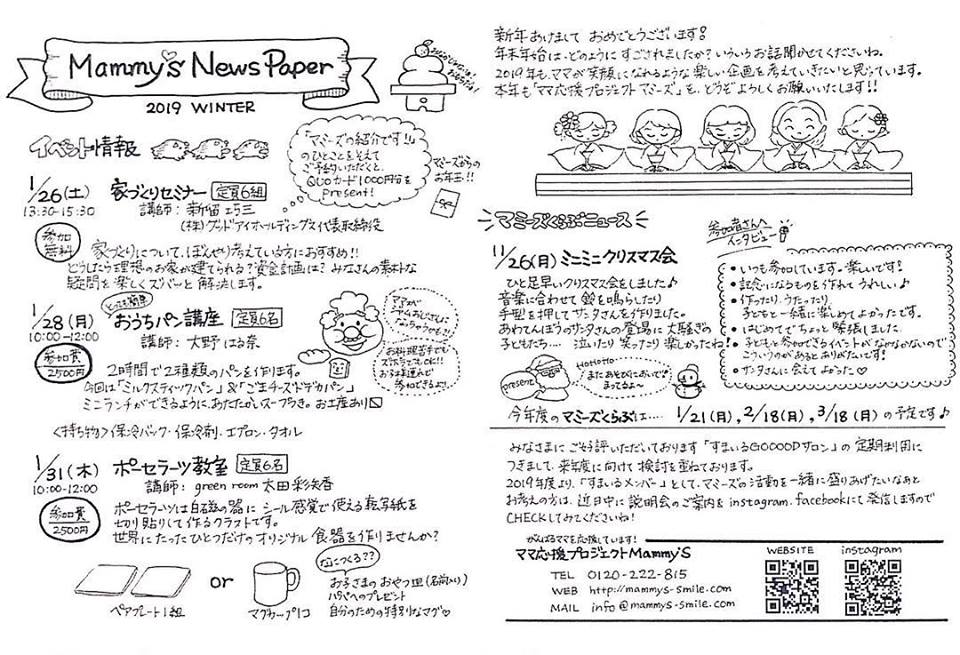 Mammy's News Paper
2019 WINTER
イベント情報
「マミーズの紹介です!!」
のひとことをそえて
ご予約いただくと、
QUOカード1000円分を
Present!
マミーズからの
お年玉!!
1/26(土) 家づくりセミナー 定員6組
13:30-15:30
講師:新留
(株)グッドアイホールディングス 代表取締役
参加
無料
家づくりについて、ぼんやり考えている方におすすめ!!
どうしたら理想のお家が建てられる?資金計画は?みなさんの素朴な
疑問を楽しくズバッと解決します。
1/28(月) おうちパン講座 定員6名
10:00-12:00
講師:大野はる奈
参加費
2500円
2時間で2種類のパンを作ります。
今回は「ミルクスティックパン」&「ごまチーズドデカパン」
ミニランチができるように、あたたかいスープつき。お土産あり
お料理苦手でも
参加できるよ!
<持ち物>保冷バック・保冷剤・エプロン・タオル
1/31(木) ポーセラーツ教室 定員6名
10:00-12:00
講師:green room 太田彩矢香
参加費
2500円
ポーセラーツは白磁の器にシール感覚で使える転写紙を
切り貼りして作るクラフトです。
世界にたったひとつだけのオリジナル食器を作りませんか?
なにつくる??
お子さまのおやつ皿(名前入り)
パパへのプレゼント
自分のための特別なマグ♡
or
ペアプレート1組
マグカップ1コ
新年あけまして おめでとうございます!
年末年始は、どのようにすごされましたか?いろいろお話聞かせてくださいね。
2019年も、ママが笑顔になれるような楽しい企画を考えていきたいと思っています。
本年も「ママ応援プロジェクトマミーズ」を、どうぞよろしくお願いいたします!!
マミーズくらぶニュース
11/26(月) ミニミニクリスマス会
ひと足早いクリスマス会をしました♪
音楽に合わせて鈴を鳴らしたり
手型を押してサンタさんを作りました。
あわてんぼうのサンタさんの登場に大騒ぎの
子どもたち…。泣いたり笑ったり楽しかったね!
present
HoHoHo
またあそびにおいで
まってるよ〜
参加者さんへ
インタビュー
• いつも参加しています。楽しいです!
• 記念になるものを作れてうれしい♪
• 作ったり、うたったり、
子どもと一緒に楽しめてよかったです。
• はじめてでちょっと緊張しました。
• 子どもと参加できるイベントがなかなかないので
こういうのがあるとありがたいです!
• サンタさんに会えてよかった♡
今年度のマミーズくらぶは…. 1/21(月), 2/18(月), 3/18(月)の予定です♪
みなさまにご好評いただいております「すまいるGOOOODサロン」の定期利用に
つきまして、来年度に向けて検討を重ねております。
2019年度より、「すまいるメンバー」として、マミーズの活動を一緒に盛りあげたいなあと
お考えの方は、近日中に説明会のご案内をinstagram、facebookにて発信しますので
CHECKしてみてくださいね!
がんばるママを応援しています!
ママ応援プロジェクトMammy'S
TEL 0120-222-815
WEB http://mammys-smile.com
MAIL info@mammys-smile.com
WEBSITE
instagram